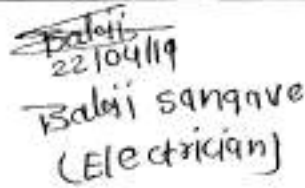 Balaji
22/04/19
Balaji sangave
(Electrician)